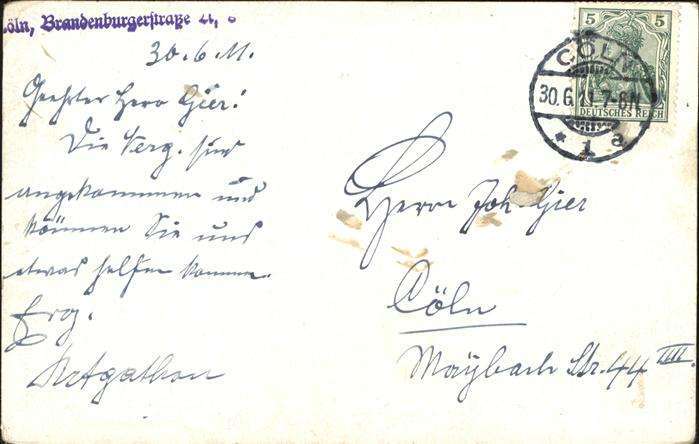 Cöln, Brandenburgerstraße
30.6.11.
Geehrter Herr Gier!
Die Verg. sind
angekommen und
können Sie uns
etwas helfen kommen.
Erg.
Herrn Joh. Gier
Cöln
Maybach Str. 44 IIII.
5 5
DEUTSCHES REICH
CÖLN
30.6.11.7-8N
* 1 a